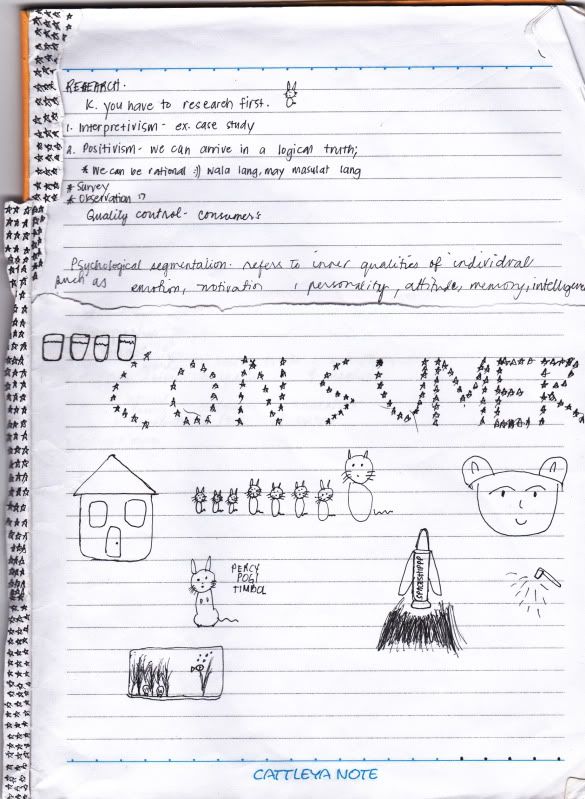 RESEARCH.
K. you have to research first.
1. Interpretivism - ex. case study
2. Positivism - we can arrive in a logical truth;
* We can be rational :)) wala lang, may masulat lang
* Survey
* Observation
Quality control - consumers
Psychological segmentation - refers to inner qualities of individual
such as emotion, motivation, personality, attitude, memory, intelligen
CONSUMER
PERCY
POGI
TIMBOL
SPACESHIPPP
CATTLEYA NOTE